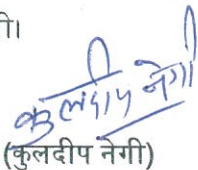 ी।
कुलदीप नेगी
(कुलदीप नेगी)